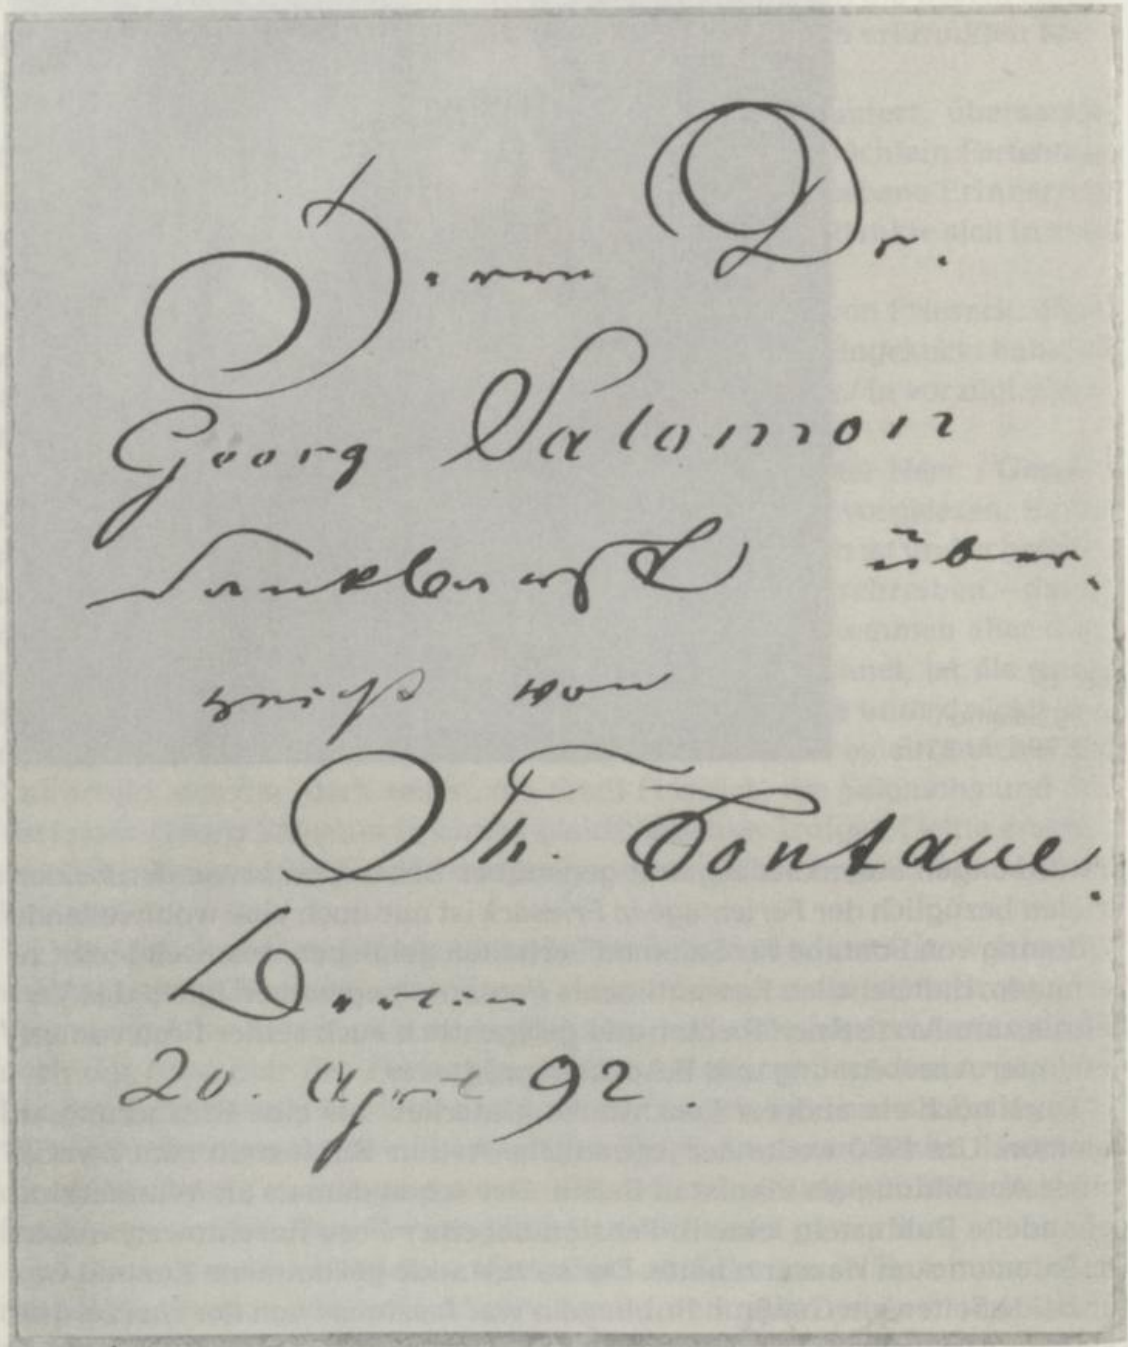 Herrn Dr.
Georg Salomon
dankbarst über-
reicht von
Th. Fontane.
Berlin
20. April 92.